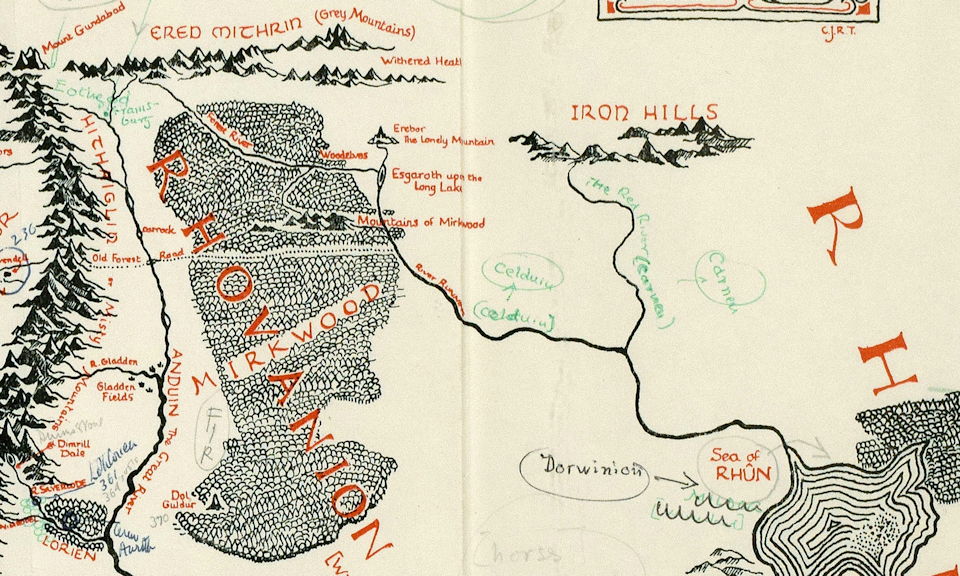 Mount Gundabad
ERED MITHRIN (Grey Mountains)
C.J.R.T.
Withered Heath
IRON HILLS
HITHAIGLIN
Forest River
Erebor
The Lonely Mountain
Woodelves
Esgaroth upon the
Long Lake
Mountains of Mirkwood
The Red River (Carnen)
Carnen
230
Old Forest Road
River Running
Celduin
(Celduin)
RHOVANION
MIRKWOOD
or
Misty
Mountains
R. Gladden
Gladden
Fields
ANDUIN The Great River
FIR
Dimrill
Dale
Lothlorien
361
R. SILVERLODE
Dol
Guldur
390
LORIEN
Dorwinion
Sea of
RHÛN
R
H
[horse